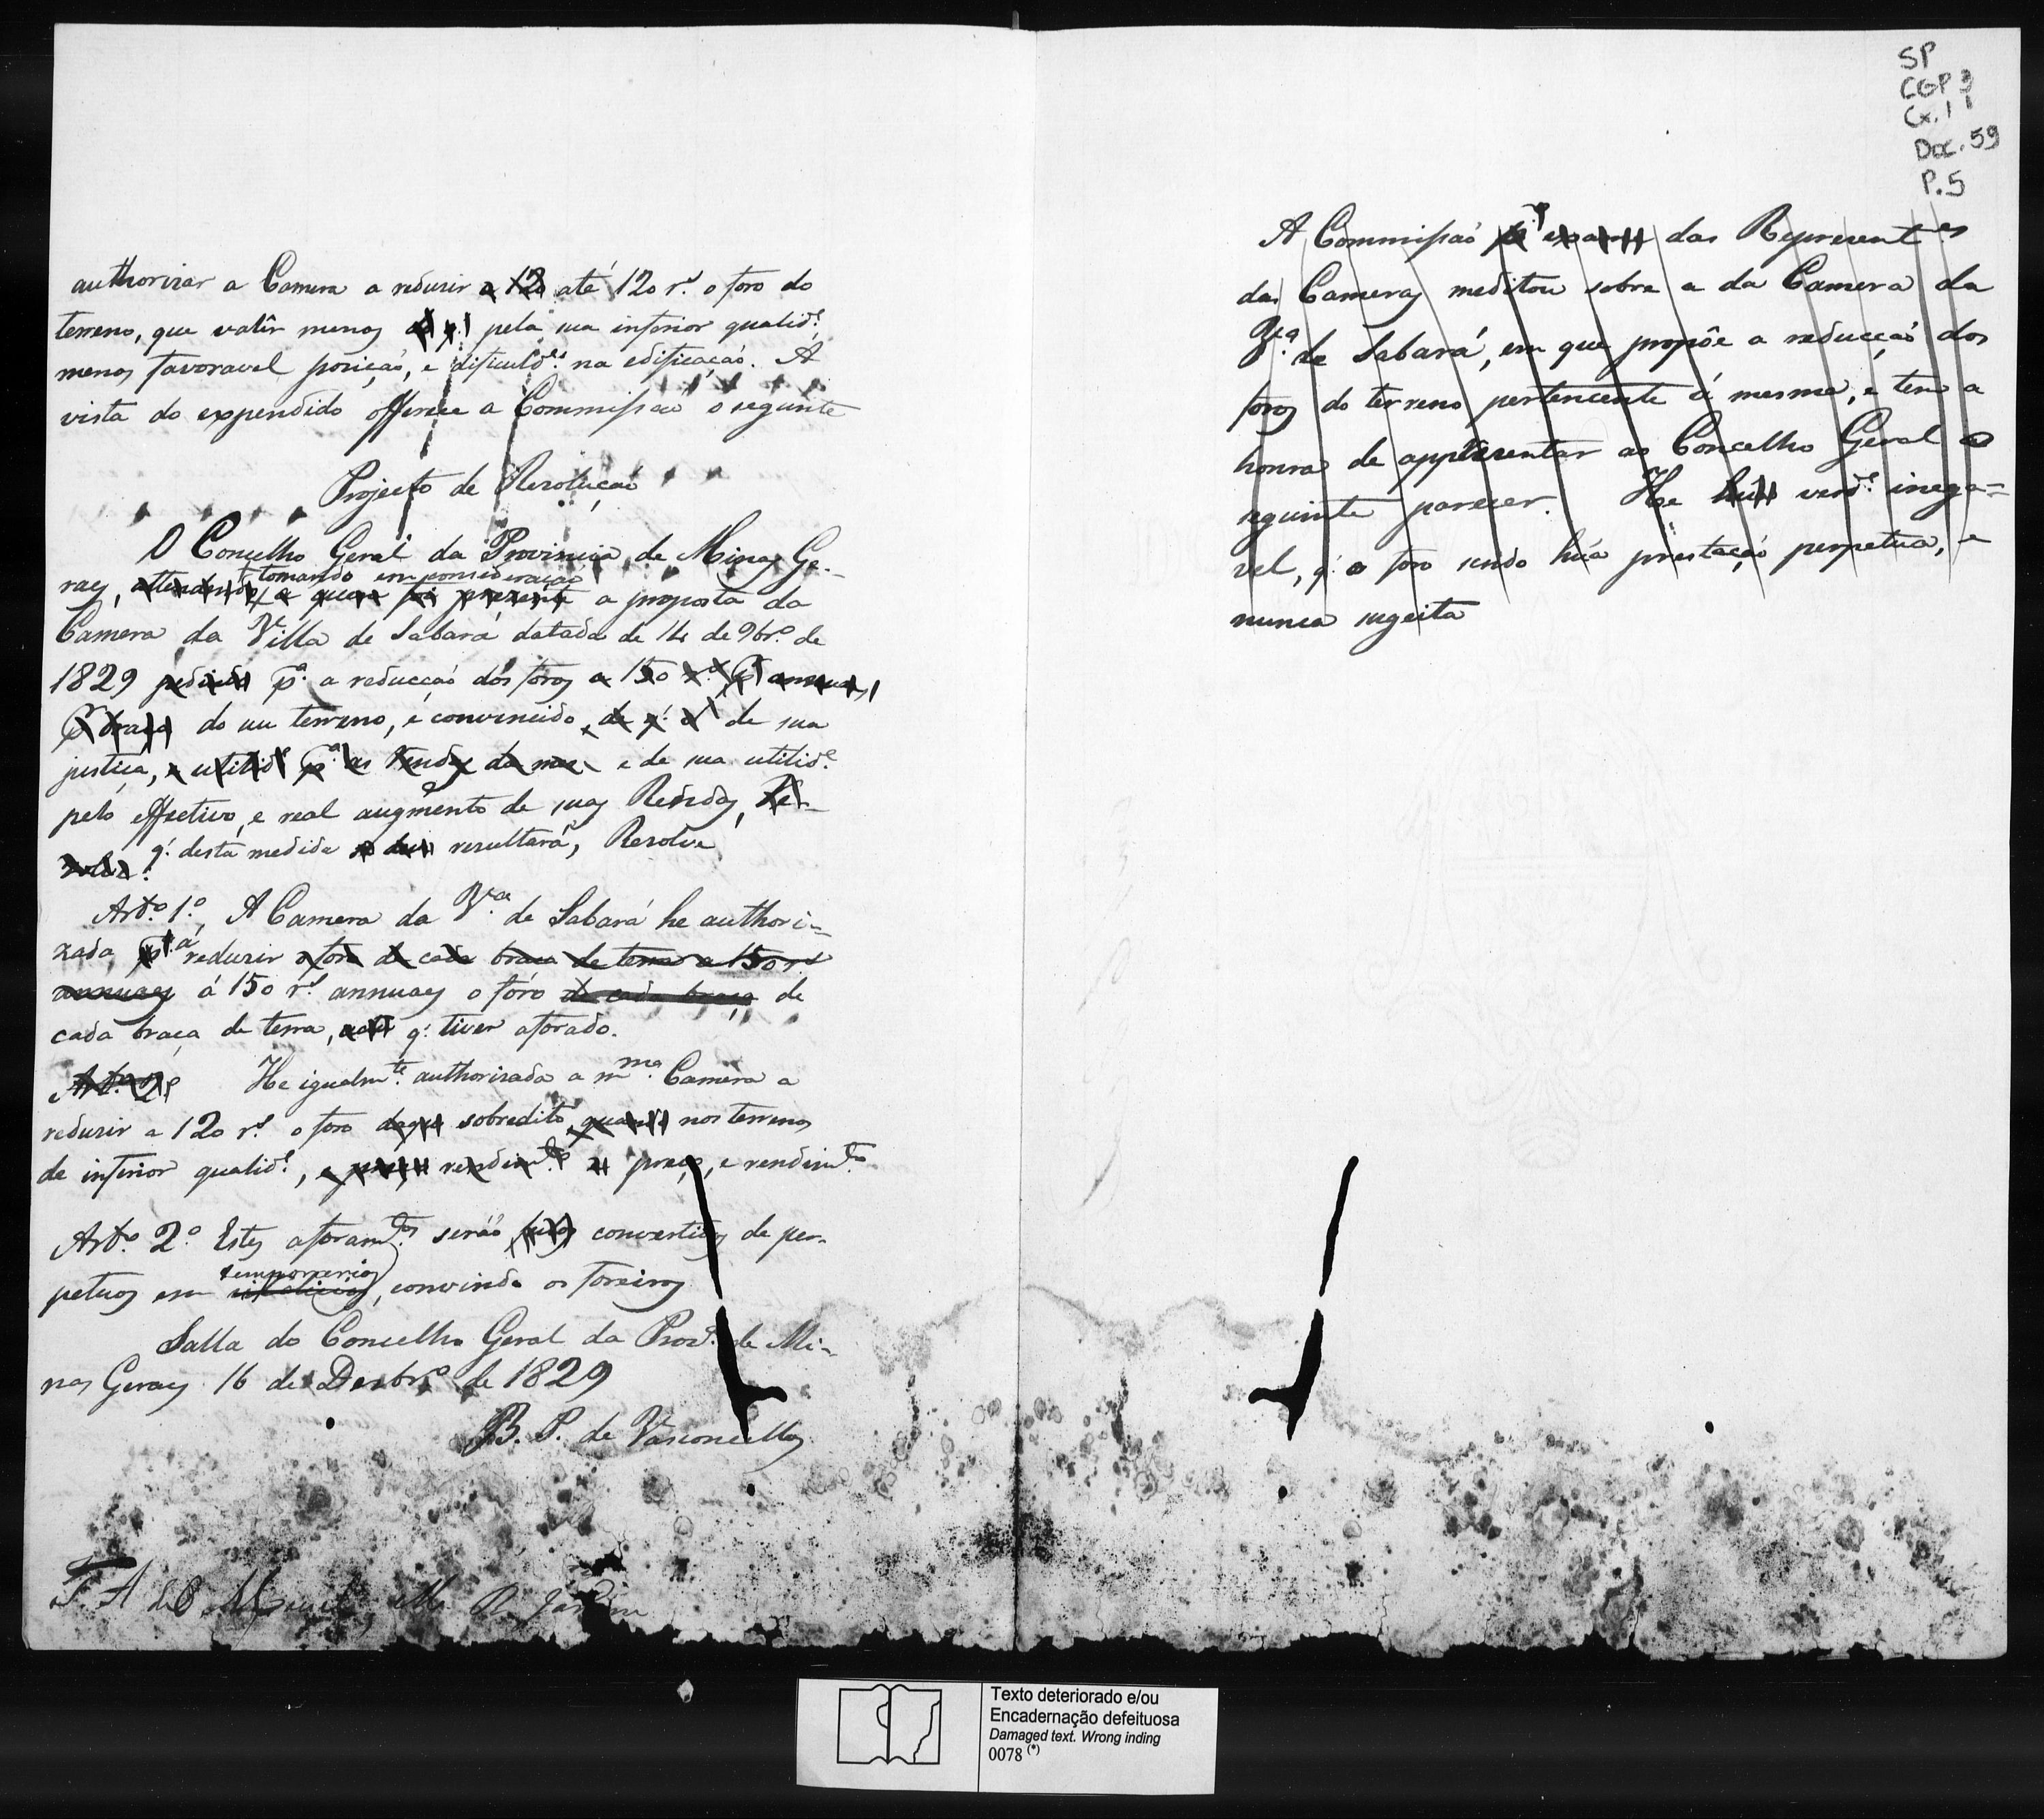 authorizar a Camera a redusir a 120 até 120 r.s o foro do
terreno, que valêr menos pela sua inferior qualid.e
menos favoravel posição, e dificuld.es na edificação. A
vista do expendido offerece a Commissaõ o seguinte
Projecto de Resolução
O Concelho Geral da Provincia de Minas Ge-
raes, attendendo a quem foi presente tomando em consideração a proposta da
Camera da Villa de Sabará datada de 14 de 9br.o de
1829 pedindo p.a a reducçaõ dos foros a 150 r.s annuaes
p.r braça do seu terreno, e convencido, de q.' a de sua
justiça, e utilid.e p.a as rendas da mes e de sua utilid.e
pelo effectivo, e real augmento de suas Rendas, Re-
solve. q.' desta medida resultará, Resolve
Art.o 1.o A Camera da V.a de Sabará he authori-
zada p.a á redusir o foro de cada braça de terra a 150 r.s
annuaes á 150 r.s annuaes o fôro de cada braça de
cada braça de terra, q.' tiver aforado.
Art.o 2.o He igualm.te authorisada a m.ma Camera a
redusir a 120 r.s o foro sobredito, quando nos terrenos
de inferior qualid.e, e rendim.to preço, e rendim.to
Art.o 2.o Estes aforam.tos seráõ convertidos de per-
petuos em vitalicios temporarios, convindo os foreiros
Salla do Concelho Geral da Prov.a de Mi-
nas Geraes 16 de Dezbr.o de 1829
B. P. de Vasconcellos
F. A de
SP
CGP 3
Cx. 11
Doc. 59
P. 5
A Commissaõ das Represent.es
das Cameras meditou sobre a da Camera da
V.a de Sabará, em que propõe a reducçaõ dos
foros do terreno pertencente á mesma, e tem a
honra de appresentar ao Concelho Geral o
seguinte parecer. He verd.e inega-
vel, q.' o foro sendo hũa prestaçaõ perpetua, e
nunca sugeita
Texto deteriorado e/ou
Encadernação defeituosa
Damaged text. Wrong inding
0078 (*)